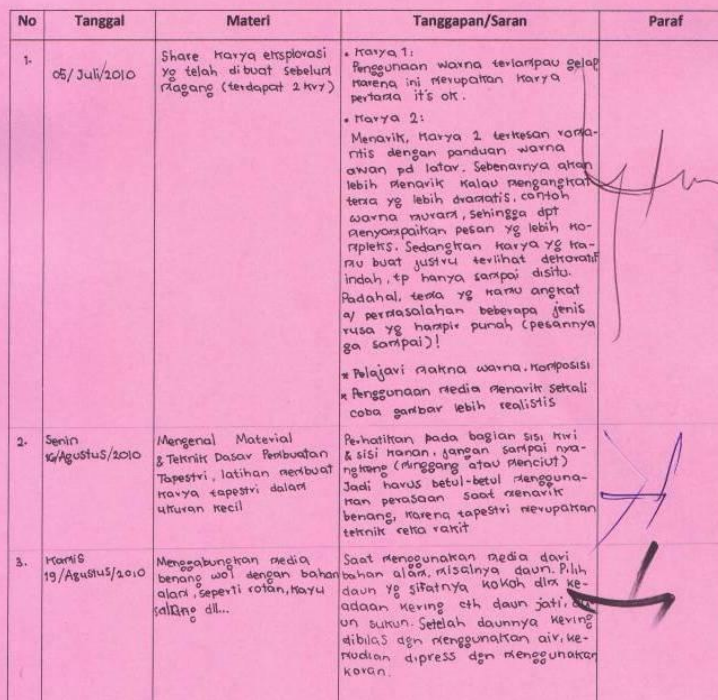 No Tanggal Materi Tanggapan/Saran Paraf
1.
05/Juli/2010
Share Karya eksplorasi
yg telah dibuat sebelum
Magang (terdapat 2 kry)
• Karya 1:
Penggunaan warna terlampau gelap
karena ini merupakan karya
pertama it's ok.
• Karya 2:
Menarik, Karya 2 terkesan roma-
ntis dengan panduan warna
awan pd latar. Sebenarnya akan
lebih menarik kalau mengangkat
tema yg lebih dramatis, contoh
warna muram, sehingga dpt
menyampaikan pesan yg lebih ko-
mpleks. Sedangkan karya yg ka-
mu buat justru terlihat dekoratif
indah, tp hanya sampai disitu.
Padahal, tema yg kamu angkat
a/ permasalahan beberapa jenis
rusa yg hampir punah (pesannya
ga sampai)!
* Pelajari makna warna, komposisi
* Penggunaan media menarik sekali
coba gambar lebih realistis
2.
Senin
16/Agustus/2010
Mengenal Material
& Teknik Dasar Pembuatan
Tapestri, latihan membuat
karya tapestri dalam
ukuran kecil
Perhatikan pada bagian sisi kiri
& sisi kanan, jangan sampai nya-
ngkeng (minggang atau menciut)
Jadi harus betul-betul mengguna-
kan perasaan saat menarik
benang, karena tapestri merupakan
teknik reka rakit
3.
Kamis
19/Agustus/2010
Menggabungkan media
benang wol dengan bahan
alam, seperti rotan, kayu
dll...
Saat menggunakan media dari
bahan alam, misalnya daun. Pilih
daun yg sifatnya kokoh dlm ke-
adaan kering cth daun jati, da-
un sukun. Setelah daunnya kering
dibilas dgn menggunakan air, ke-
mudian dipress dgn menggunakan
koran.